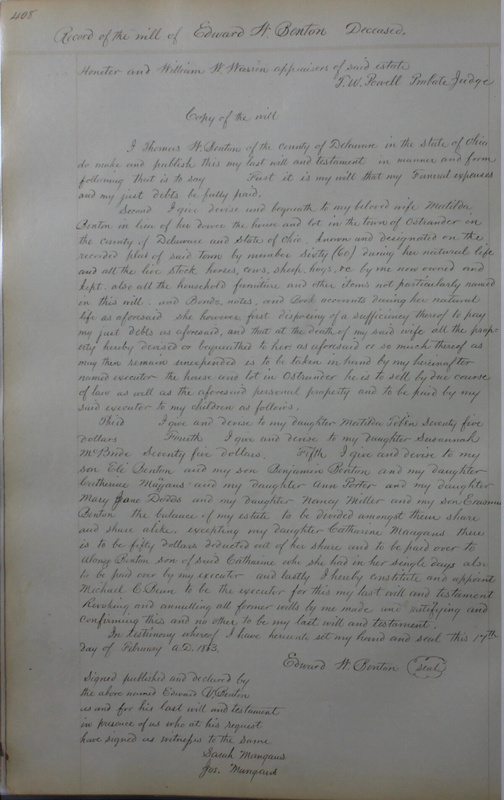 408
Record of the will of Edward H. Benton Deceased.
Hometer and William W. Warrin appraisers of said estate
T. W. Powell Probate Judge
Copy of the will
I Thomas H. Benton of the county of Delaware in the state of Ohio
do make and publish this my last will and testament in manner and form
following that is to say First it is my will that my Funeral expenses
and my just debts be fully paid.
Second I give devise and bequeath to my beloved wife Matilda
Benton in lieu of her dower the house and lot in the town of Ostrander in
the county of Delaware and state of Ohio. known and designated on the
recorded plat of said town by number sixty (60) during her natural life
and all the live stock horses, cows, sheep, hogs, &c by me now owned and
kept. also all the household furniture and other items not particularly named
in this will. and Bonds, notes, and Book accounts during her natural
life as aforesaid she however first disposing of a sufficiency thereof to pay
my just debts as aforesaid, and that at the death of my said wife all the prop-
erty hereby devised or bequeathed to her as aforesaid or so much thereof as
may then remain unexpended is to be taken in hand by my hereinafter
named executor the house and lot in Ostrander he is to sell by due course
of law as well as the aforesaid personal property and to be paid by my
said executor to my children as follows.
Third I give and devise to my daughter Matilda Seventy five
dollars Fourth I give and devise to my daughter Susannah
McBride Seventy five Dollars. Fifth I give and devise to my
son Eli Benton and my son Benjamin Benton and my daughter
Catherine Mugans and my daughter Ann Porter and my daughter
Mary Jane Dodds and my daughter Nancy Miller and my son Erasmus
Benton the balance of my estate to be divided amongst them share
and share alike. excepting my daughter Catharine Mangans there
is to be fifty dollars deducted out of her share and to be paid over to
Alonzo Benton son of said Catharine who she had in her single days also
to be paid over by my executor and lastly I hereby constitute and appoint
Michael C. to be the executor for this my last will and testament
Revoking and annulling all former wills by me made and ratifying and
confirming this and no other to be my last will and testament.
In testimony whereof I have hereunto set my hand and seal this 17th
day of February A.D. 1863.
Edward H. Benton (seal)
Signed published and declared by
the above named Edward H. Benton
as and for his last will and testament
in presence of us who at his request
have signed as witnesses to the same
Sarah Mangans
Jos. Mangans